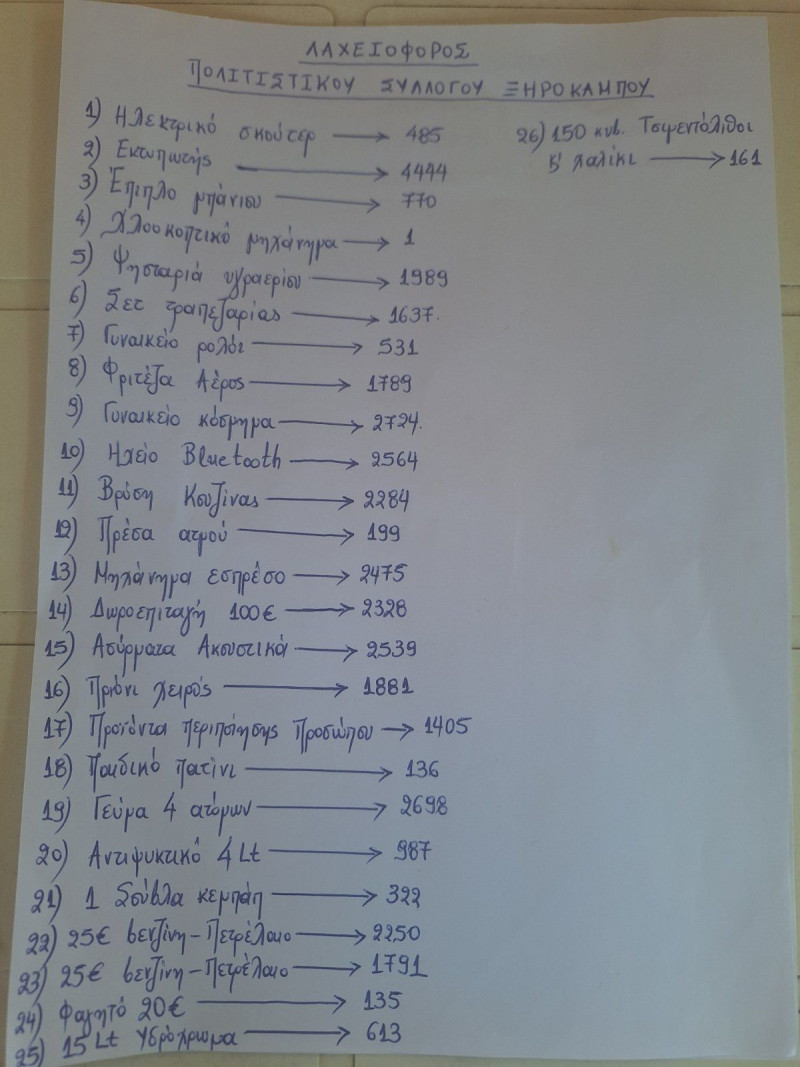 ΛΑΧΕΙΟΦΟΡΟΣ
ΠΟΛΙΤΙΣΤΙΚΟΥ ΣΥΛΛΟΓΟΥ ΞΗΡΟΚΑΜΠΟΥ
1) Ηλεκτρικό σκούτερ → 485
2) Εκτυπωτής → 4444
3) Έπιπλο μπάνιου → 770
4) Χλοοκοπτικό μηχάνημα → 1
5) Ψησταριά υγραερίου → 1989
6) Σετ τραπεζαρίας → 1637.
7) Γυναικείο ρολόι → 531
8) Φριτέζα Αέρος → 1789
9) Γυναικείο κόσμημα → 2724.
10) Ηχείο Bluetooth → 2564
11) Βρύση Κουζίνας → 2284
12) Πρέσα ατμού → 199
13) Μηχάνημα εσπρέσο → 2475
14) Δωροεπιταγή 100€ → 2328
15) Ασύρματα Ακουστικά → 2539
16) Πριόνι χειρός → 1881
17) Προϊόντα περιποίησης Προσώπου → 1405
18) Παιδικό πατίνι → 136
19) Γεύμα 4 ατόμων → 2698
20) Αντιψυκτικό 4Lt → 987
21) 1 Σούβλα κεμπάπ → 322
22) 25€ βενζίνη-Πετρέλαιο → 2250
23) 25€ βενζίνη-Πετρέλαιο → 1791
24) Φαγητό 20€ → 135
25) 15Lt Υδρόχρωμα → 613
26) 150 κυβ. Τσιμεντόλιθοι
ή χαλίκι → 161